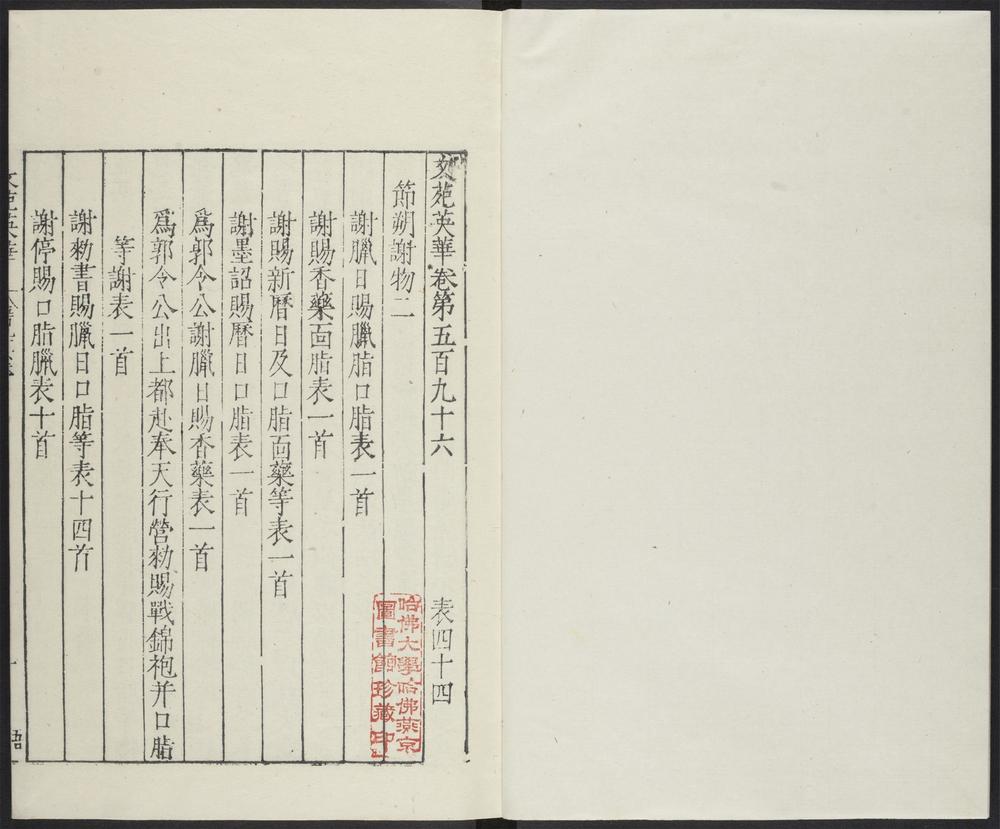 文苑英華卷第五百九十六　表四十四
節朔謝物二
謝臘日賜臘脂口脂表一首
謝賜香藥面脂表一首
謝賜新曆日及口脂面藥等表一首
謝墨詔賜曆日口脂表一首
爲郭令公謝臘日賜香藥表一首
爲郭令公出上都赴奉天行營勑賜戰錦袍并口脂
等謝表一首
謝勑書賜臘日口脂等表十四首
謝停賜口脂臘表十首
哈佛大學哈佛燕京
圖書館珍藏印